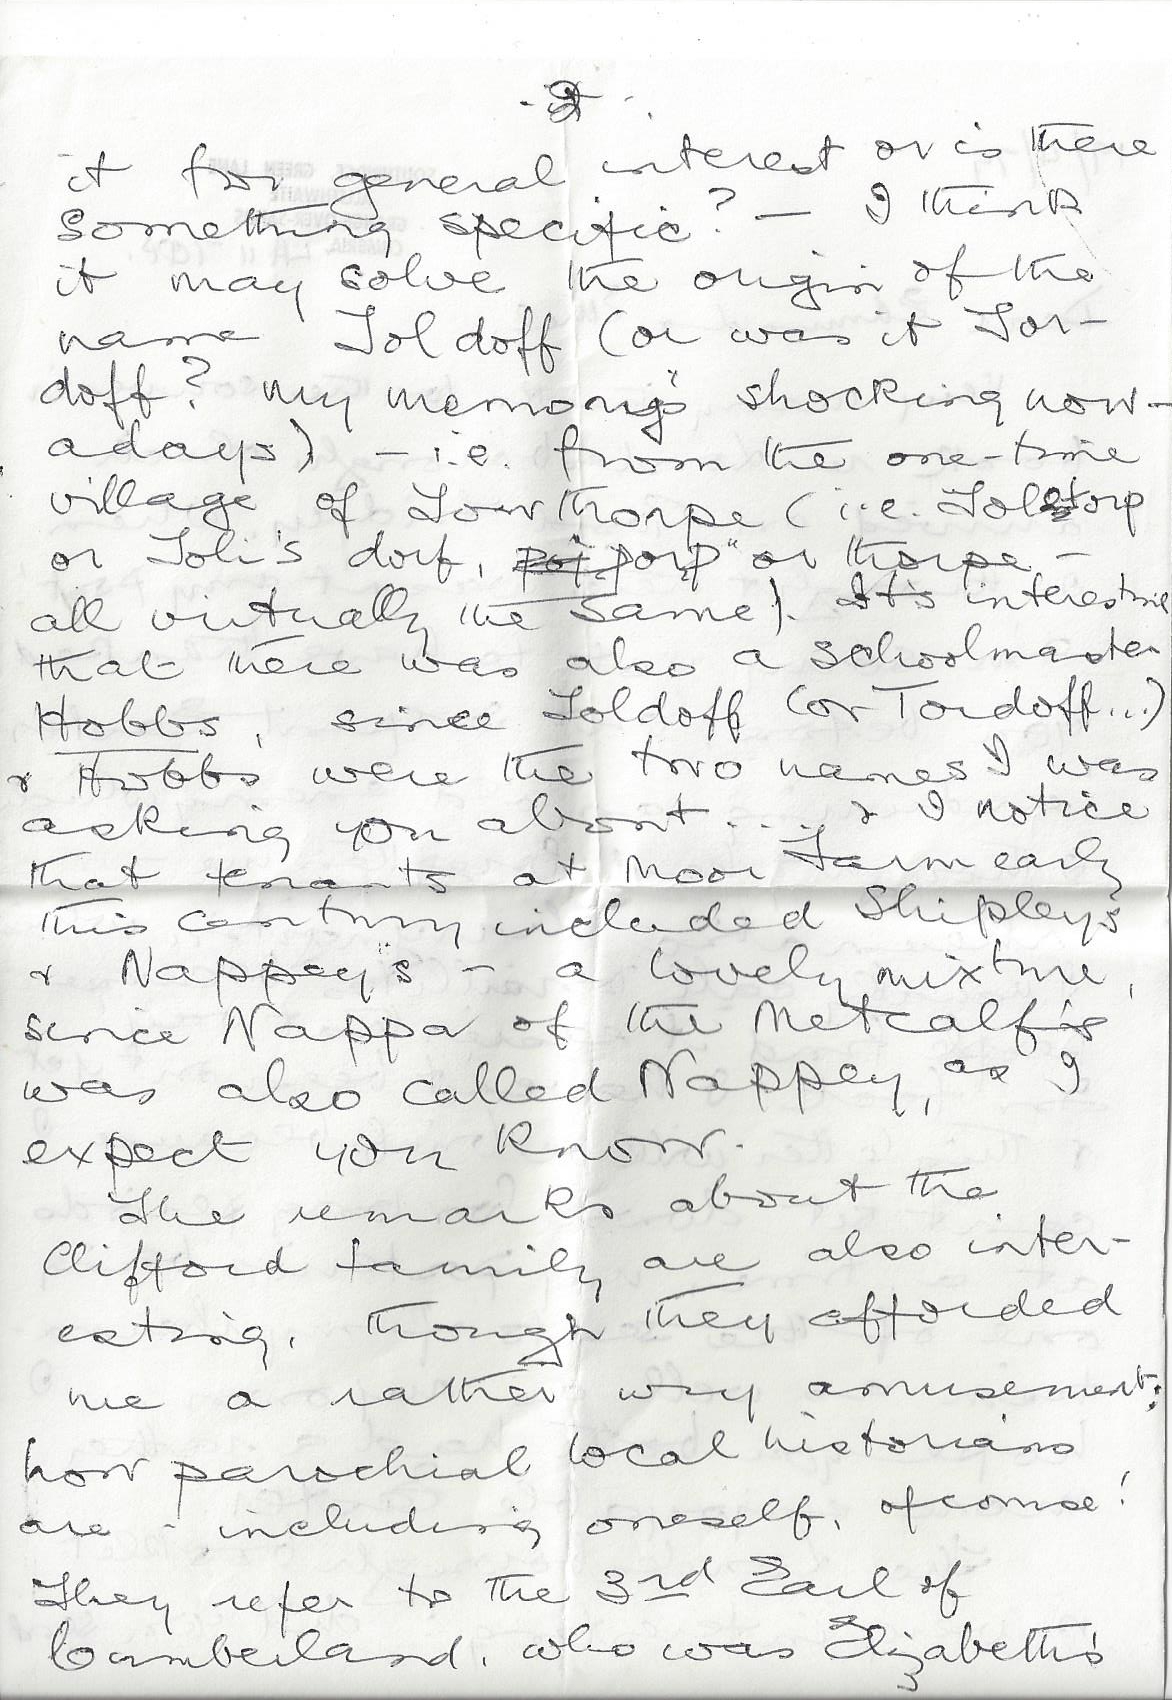 - 2 -
it for general interest or is there
something specific? — I think
it may solve the origin of the
name Toldoff (or was it Tor-
doff? My memory's shocking now-
adays) — i.e. from the one-time
village of Lowthorpe (i.e.
or Toli's dorf, "porp" or thorpe —
all virtually the same). It's interesting
that there was also a schoolmaster
Hobbs, since Toldoff (or Tordoff...)
& Hobbs were the two names I was
asking you about.... & I notice
that tenants at Moor Farm early
this century included Shipley's
& Nappey's - a lovely mixture,
since Nappa of the Metcalfs
was also called Nappey, as I
expect you know.
The remarks about the
Clifford family are also inter-
esting, though they afforded
me a rather wry amusement:
how parochial local historians
are - including oneself, of course!
They refer to the 3rd Earl of
Cumberland, who was Elizabeth's